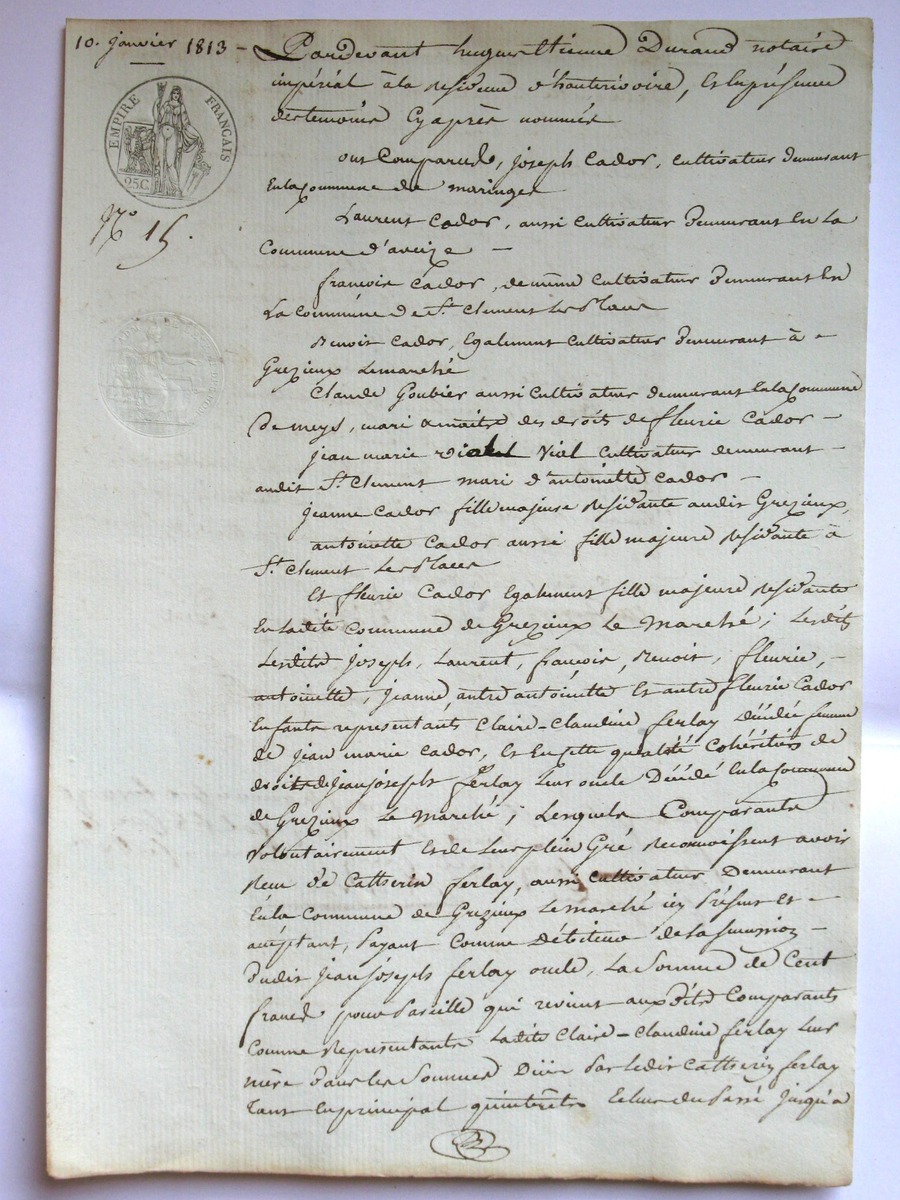 10. janvier 1813 -
EMPIRE FRANÇAIS
25C
N.° 15.
Pardevant hugues Etienne Durand notaire
impérial à la residence d'hauterivoire, Et En présence
des temoins Cy après nommés
ont Comparuds, joseph Cador, Cultivateur demeurant
En la Commune de maringes
Laurent Cador, aussi Cultivateur demeurant En La
Commune d'aveize —
françois Cador, de même Cultivateur Demeurant En
La Commune de St. Clement Les Places
Benoit Cador, Egalement Cultivateur Demeurant à -
Grezieux Lemarché
Claude Goubier aussi Cultivateur demeurant En la Commune
De meys, mari & maitre des droits de fleurie Cador -
jean marie Vial Cultivateur demeurant -
audit St. Clement mari d'antoinette Cador -
jeanne Cador fille majeure Residante audit Grezieux,
antoinette Cador aussi fille majeure Residante à
St. Clement Les Places
Et fleurie Cador Egalement fille majeure Residante
En Ladite Commune de Grezieux Le Marché ; Lesdits
Lesdits joseph, Laurent, françois, Benoit, fleurie, -
antoinette, jeanne, autre antoinette Et autre fleurie Cador
Enfants representants Claire-Claudine ferlay Décédée femme
de jean marie Cador, Et En cette qualité Cohéritiers de
droits de jean joseph ferlay Leur oncle Décédé En la Commune
de Grezieux Le Marché ; Lesquels Comparants
Volontairement Et de Leur plein Gré Reconnoissent avoir
Reçu de Catherin ferlay, aussi Cultivateur Demeurant
En la Commune de Grezieux Le marché icy Présent Et -
acceptant, Payant Comme détenteur de la Succession -
Dudit jean joseph ferlay oncle, La Somme de Cent
francs pour Pareille qui revient auxdits Comparants
Comme Representants Ladite Claire-Claudine ferlay Leur
mère Dans les Sommes Dües Par Ledit Catherin ferlay
Tant En principal qu'intérêts Echus du Passé jusqu'à